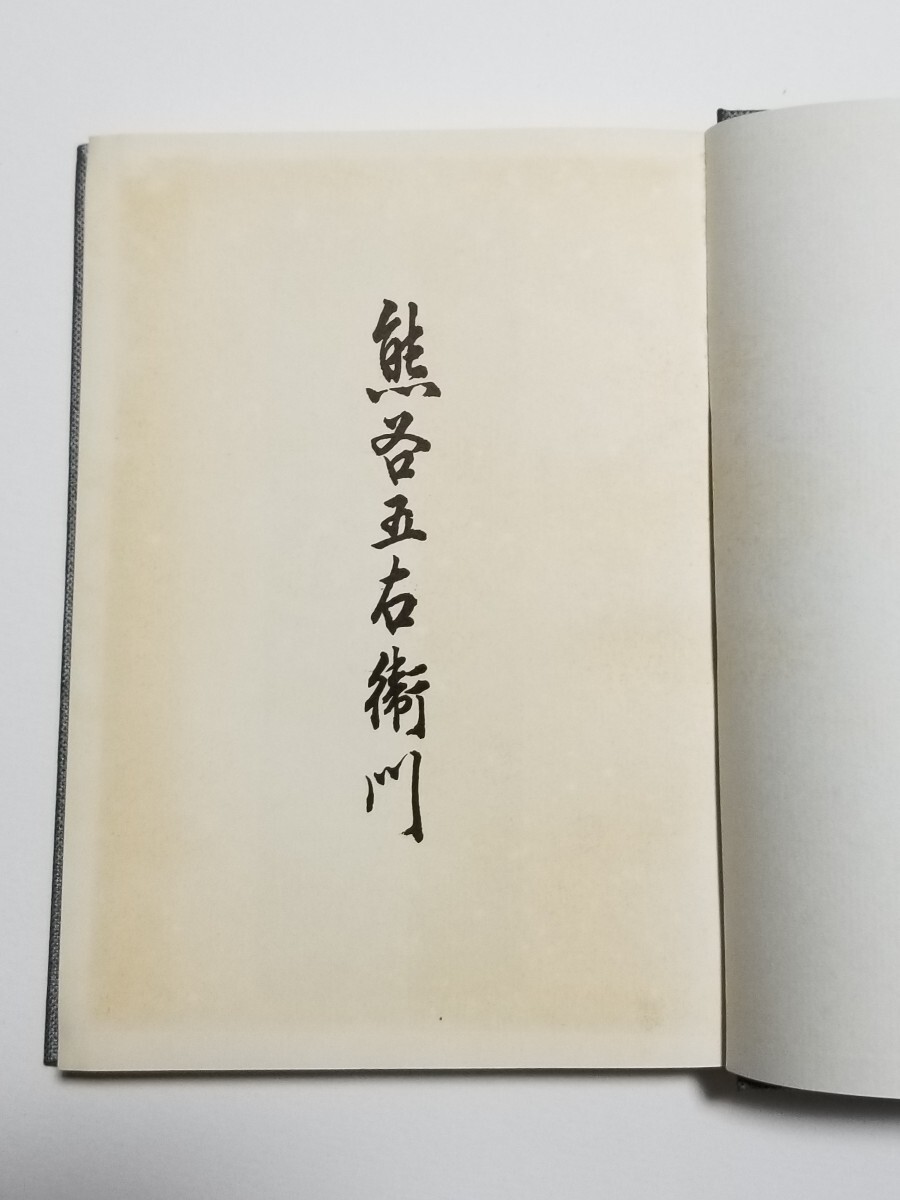 熊谷五右衛門